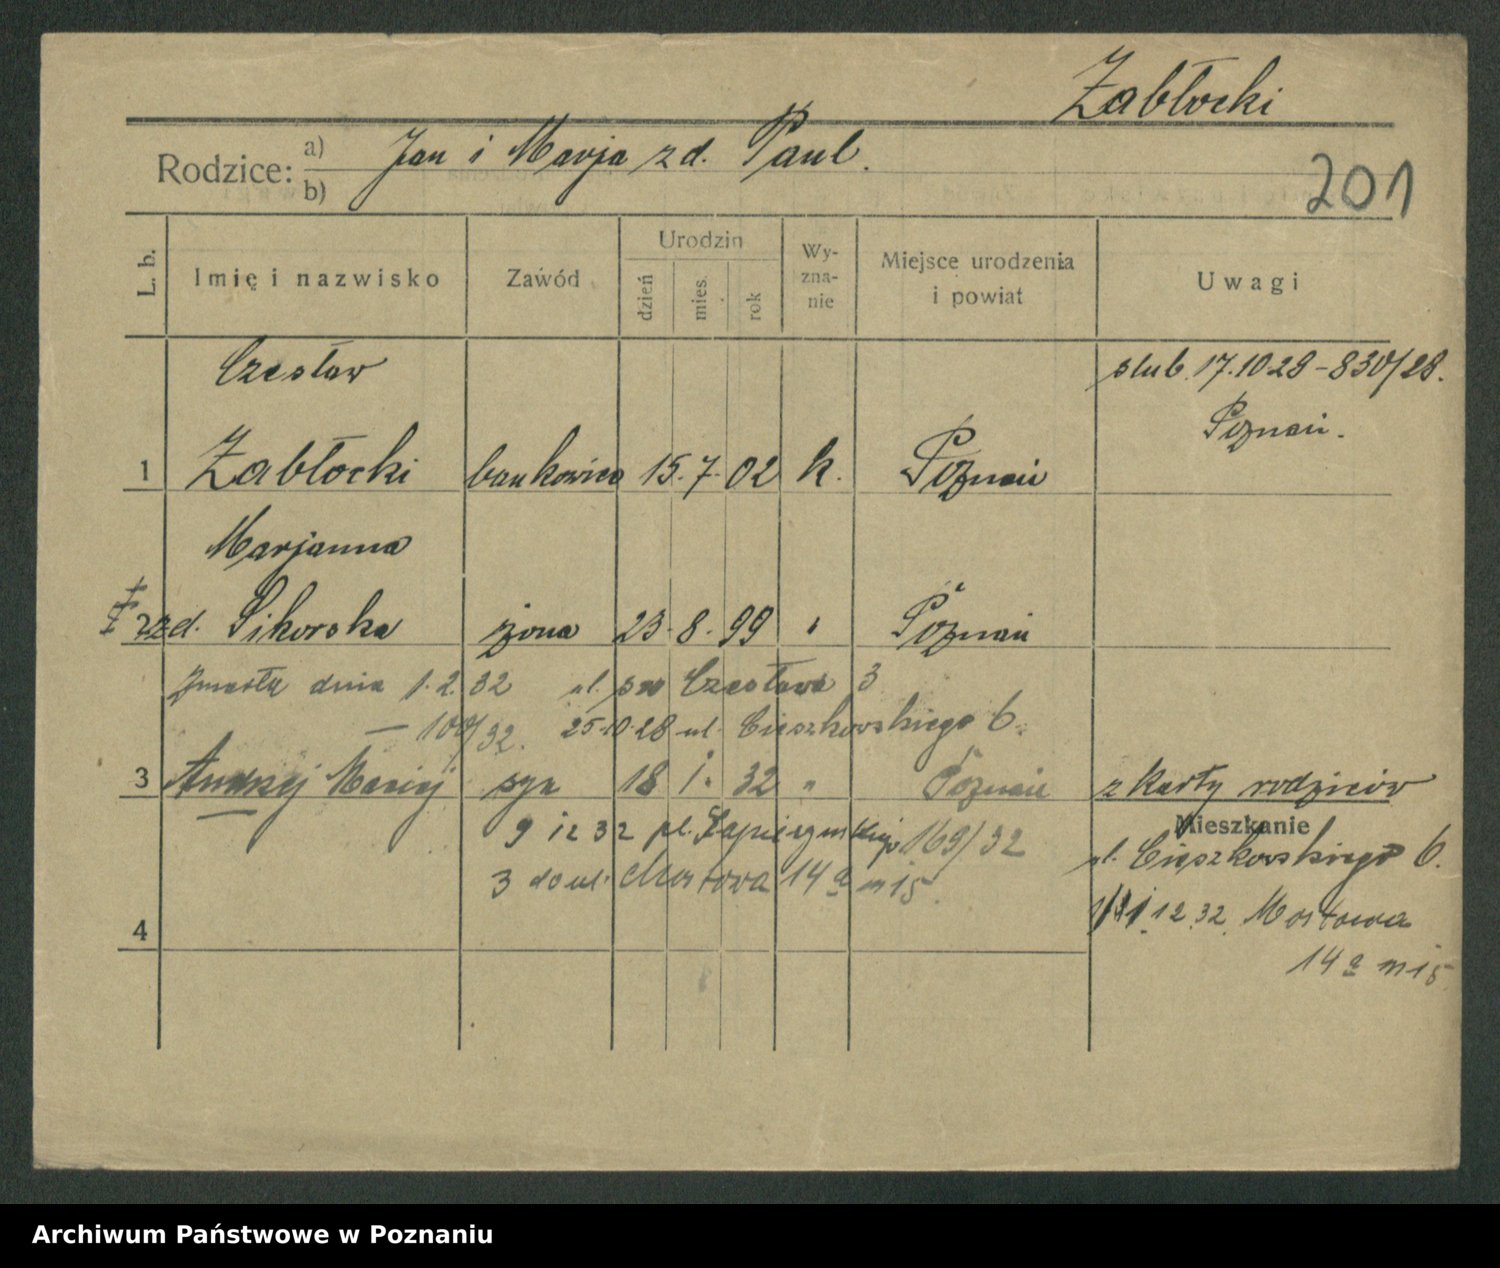 Zabłocki
Rodzice: a) Jan i Marja zd. Paul.
b)
201
L. b. Imię i nazwisko Zawód Urodzin dzień mies. rok Wy-zna-nie Miejsce urodzenia i powiat Uwagi
Czesław ślub. 17.10 28 - 830/28.
Poznań.
1 Zabłocki bankowiec 15. 7. 02 k. Poznań
Marjanna
2 zd. Sikorska żona 23. 8. 99 " Poznań
Zmarła dnia 1. 2. 32 ul. św Czesława 3
— 100/32. 25.10.28 ul. Cieszkowskiego 6.
3 Andrzej Maciej syn 18 1. 32 " Poznań z karty rodziców
Mieszkanie
9 12 32 pl. Sapieżyński 169/32
ul. Cieszkowskiego 6.
3 do ul. Mostowa 14a m 15.
1.12.32. Mostowa
4
14a m 15
Archiwum Państwowe w Poznaniu